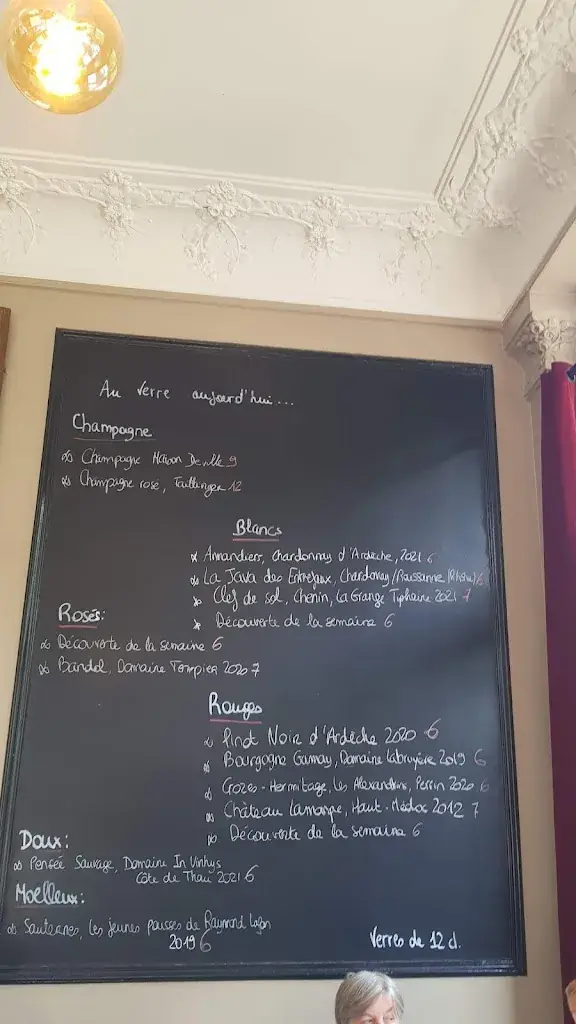 Au verre aujourd'hui...
Champagne
Champagne Maison Deville 9
Champagne rosé, Taittinger 12
Blancs
Amandiers, Chardonnay d'Ardèche, 2021 6
La Java des Entrejaux, Chardonnay/Roussanne (Rhône) 6
Clef de sol, Chenin, La Grange Tiphaine 2021 7
Découverte de la semaine 6
Rosés:
Découverte de la semaine 6
Bandol, Domaine Tempier 2020 7
Rouges
Pinot Noir d'Ardèche 2020 6
Bourgogne Gamay, Domaine Labruyère 2019 6
Crozes-Hermitage, Les Alexandrins, Perrin 2020 6
Château Lamarque, Haut-Médoc 2012 7
Découverte de la semaine 6
Doux:
Pensée Sauvage, Domaine In Vinhys
Côte de Thau 2021 6
Moelleux:
Sauternes, Les jeunes pousses de Raymond Lafon
2019 6
Verres de 12 cl.